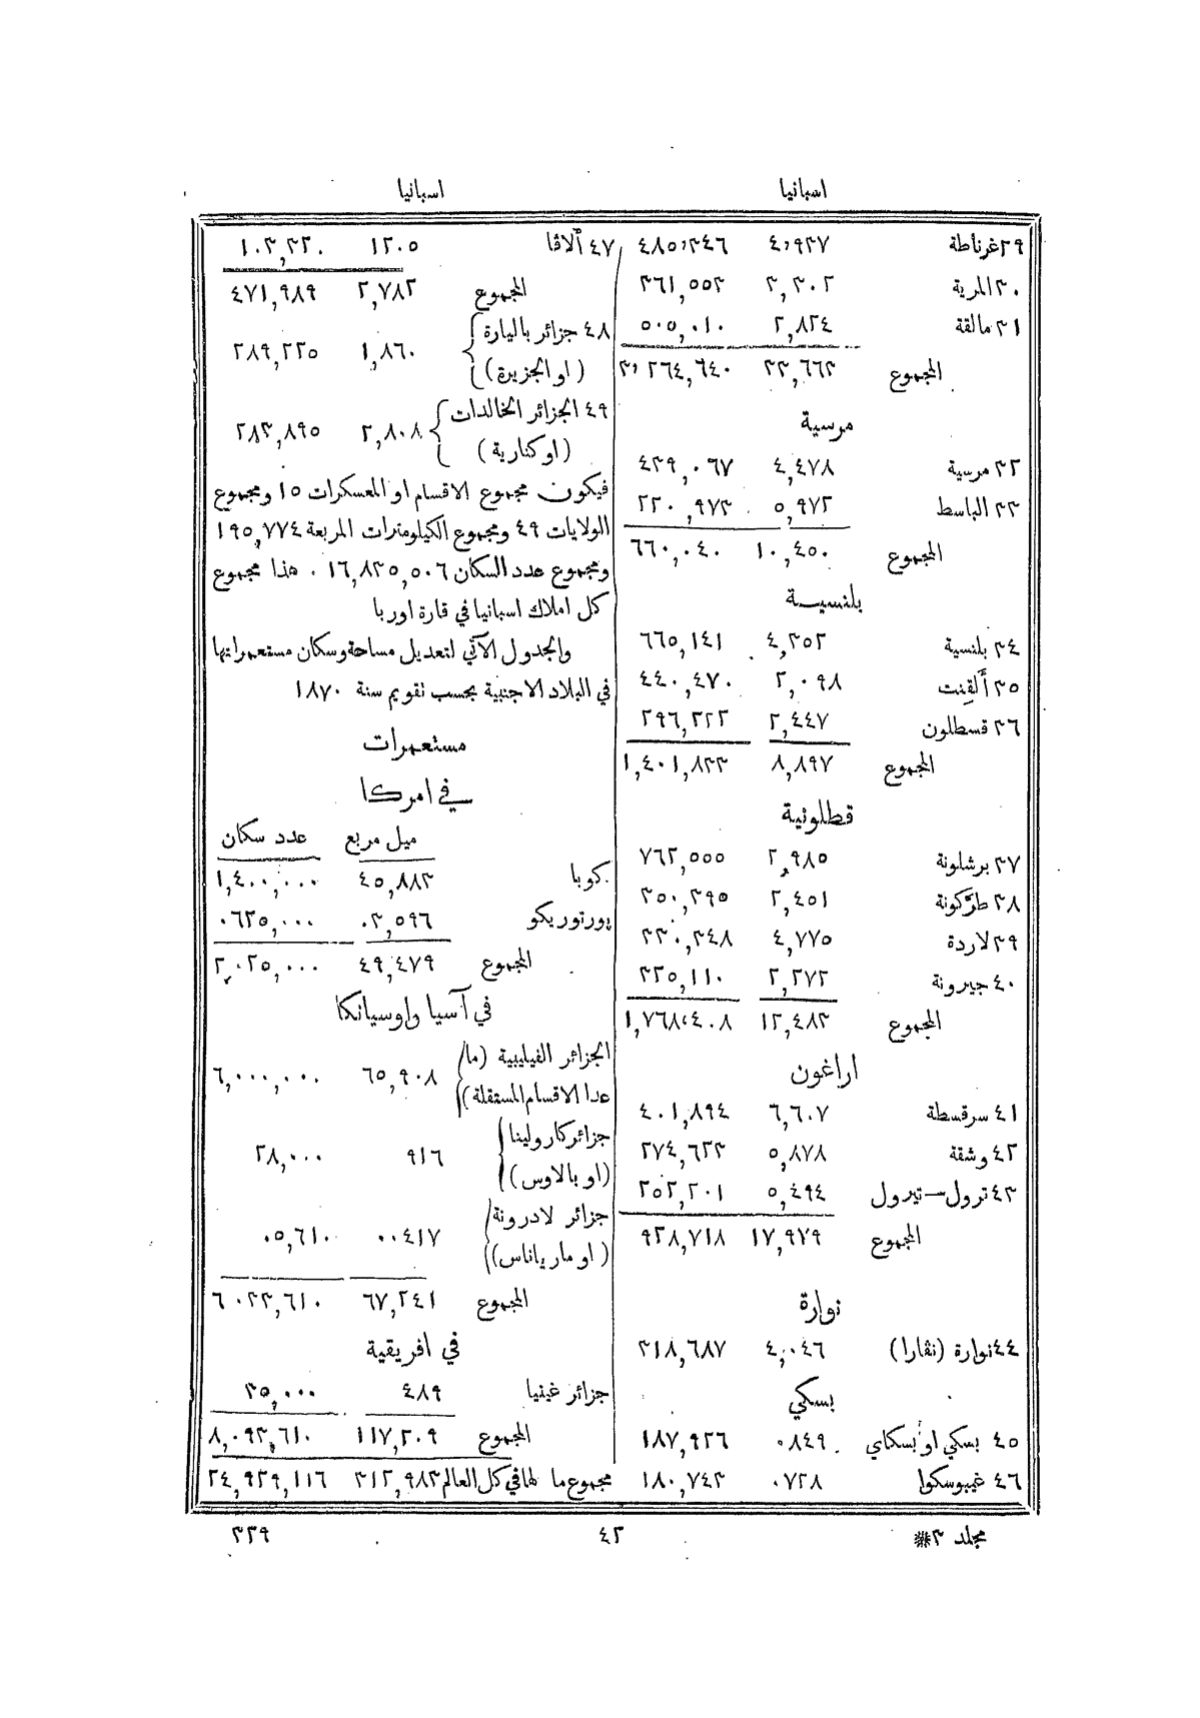 اسبانيا
اسبانيا
٢٩ غرناطة ٤,٩٣٧ ٤٨٥,٣٤٦
٣٠ المرية ٣,٣٠٢ ٣٦١,٥٥٣
٣١ مالقة ٢,٨٢٤ ٥٠٥,٠١٠
المجموع ٣٣,٦٦٣ ٣,٢٦٤,٦٤٠
مرسية
٣٢ مرسية ٤,٤٧٨ ٤٣٩,٠٦٧
٣٣ الباسط ٥,٩٧٢ ٢٢٠,٩٧٣
المجموع ١٠,٤٥٠ ٦٦٠,٠٤٠
بلنسية
٣٤ بلنسية ٤,٣٥٢ ٦٦٥,١٤١
٣٥ أَلقِنت ٢,٠٩٨ ٤٤٠,٤٧٠
٣٦ قسطلون ٢,٤٤٧ ٢٩٦,٢٢٢
المجموع ٨,٨٩٧ ١,٤٠١,٨٣٣
قطلونية
٣٧ برشلونة ٢,٩٨٥ ٧٦٢,٥٥٥
٣٨ طرّكونة ٢,٤٥١ ٣٥٠,٣٩٥
٣٩ لاردة ٤,٧٧٥ ٣٣٠,٣٤٨
٤٠ جيرونة ٢,٢٧٢ ٣٢٥,١١٠
المجموع ١٢,٤٨٣ ١,٧٦٨,٤٠٨
اراغون
٤١ سرقسطة ٦,٦٠٧ ٤٠١,٨٩٤
٤٢ وشقة ٥,٨٧٨ ٢٧٤,٦٢٣
٤٣ ترول — تيرول ٥,٤٩٤ ٢٥٢,٢٠١
المجموع ١٧,٩٧٩ ٩٢٨,٧١٨
نوارة
٤٤ نوارة (نڤارا) ٤,٠٤٦ ٣١٨,٦٨٧
بسكي
٤٥ بسكي او بسكاي ٠٨٤٩ ١٨٧,٩٢٦
٤٦ غيبوسكوا ٠٧٢٨ ١٨٠,٧٤٣
٤٧ ألاڤا ١٢٠٥ ١٠٣,٣٢٠
المجموع ٢,٧٨٢ ٤٧١,٩٨٩
٤٨ جزائر باليارة
(او الجزيرة) ١,٨٦٠ ٢٨٩,٢٢٥
٤٩ الجزائر الخالدات
(او كنارية) ٢,٨٠٨ ٢٨٣,٨٩٥
فيكون مجموع الاقسام او المعسكرات ١٥ ومجموع
الولايات ٤٩ ومجموع الكيلومترات المربعة ١٩٥,٧٧٤
ومجموع عدد السكان ١٦,٨٣٥,٥٠٦ . هذا مجموع
كل املاك اسبانيا في قارة اوربا
والجدول الآتي لتعديل مساحة وسكان مستعمراتها
في البلاد الاجنبية بحسب تقويم سنة ١٨٧٠
مستعمرات
في امركا
ميل مربع عدد سكان
كوبا ٤٥,٨٨٣ ١,٤٠٠,٠٠٠
بورتوريكو ٠٣,٥٩٦ ٠٦٢٥,٠٠٠
المجموع ٤٩,٤٧٩ ٢,٠٢٥,٠٠٠
في آسيا واوسيانكا
الجزائر الفيليبية (ما
عدا الاقسام المستقلة) ٦٥,٩٠٨ ٦,٠٠٠,٠٠٠
جزائر كارولينا
(او بالاوس) ٩١٦ ٢٨,٠٠٠
جزائر لادرونة
(او مارياناس) ٠٠٤١٧ ٠٥,٦١٠
المجموع ٦٧,٢٤١ ٦٠٣٣,٦١٠
في افريقية
جزائر غينيا ٤٨٩ ٣٥,٠٠٠
المجموع ١١٧,٢٠٩ ٨,٠٩٣,٦١٠
مجموع ما لها في كل العالم ٣١٢,٩٨٣ ٢٤,٩٢٩,١١٦
مجلد ٣* ٤٢ ٣٢٩